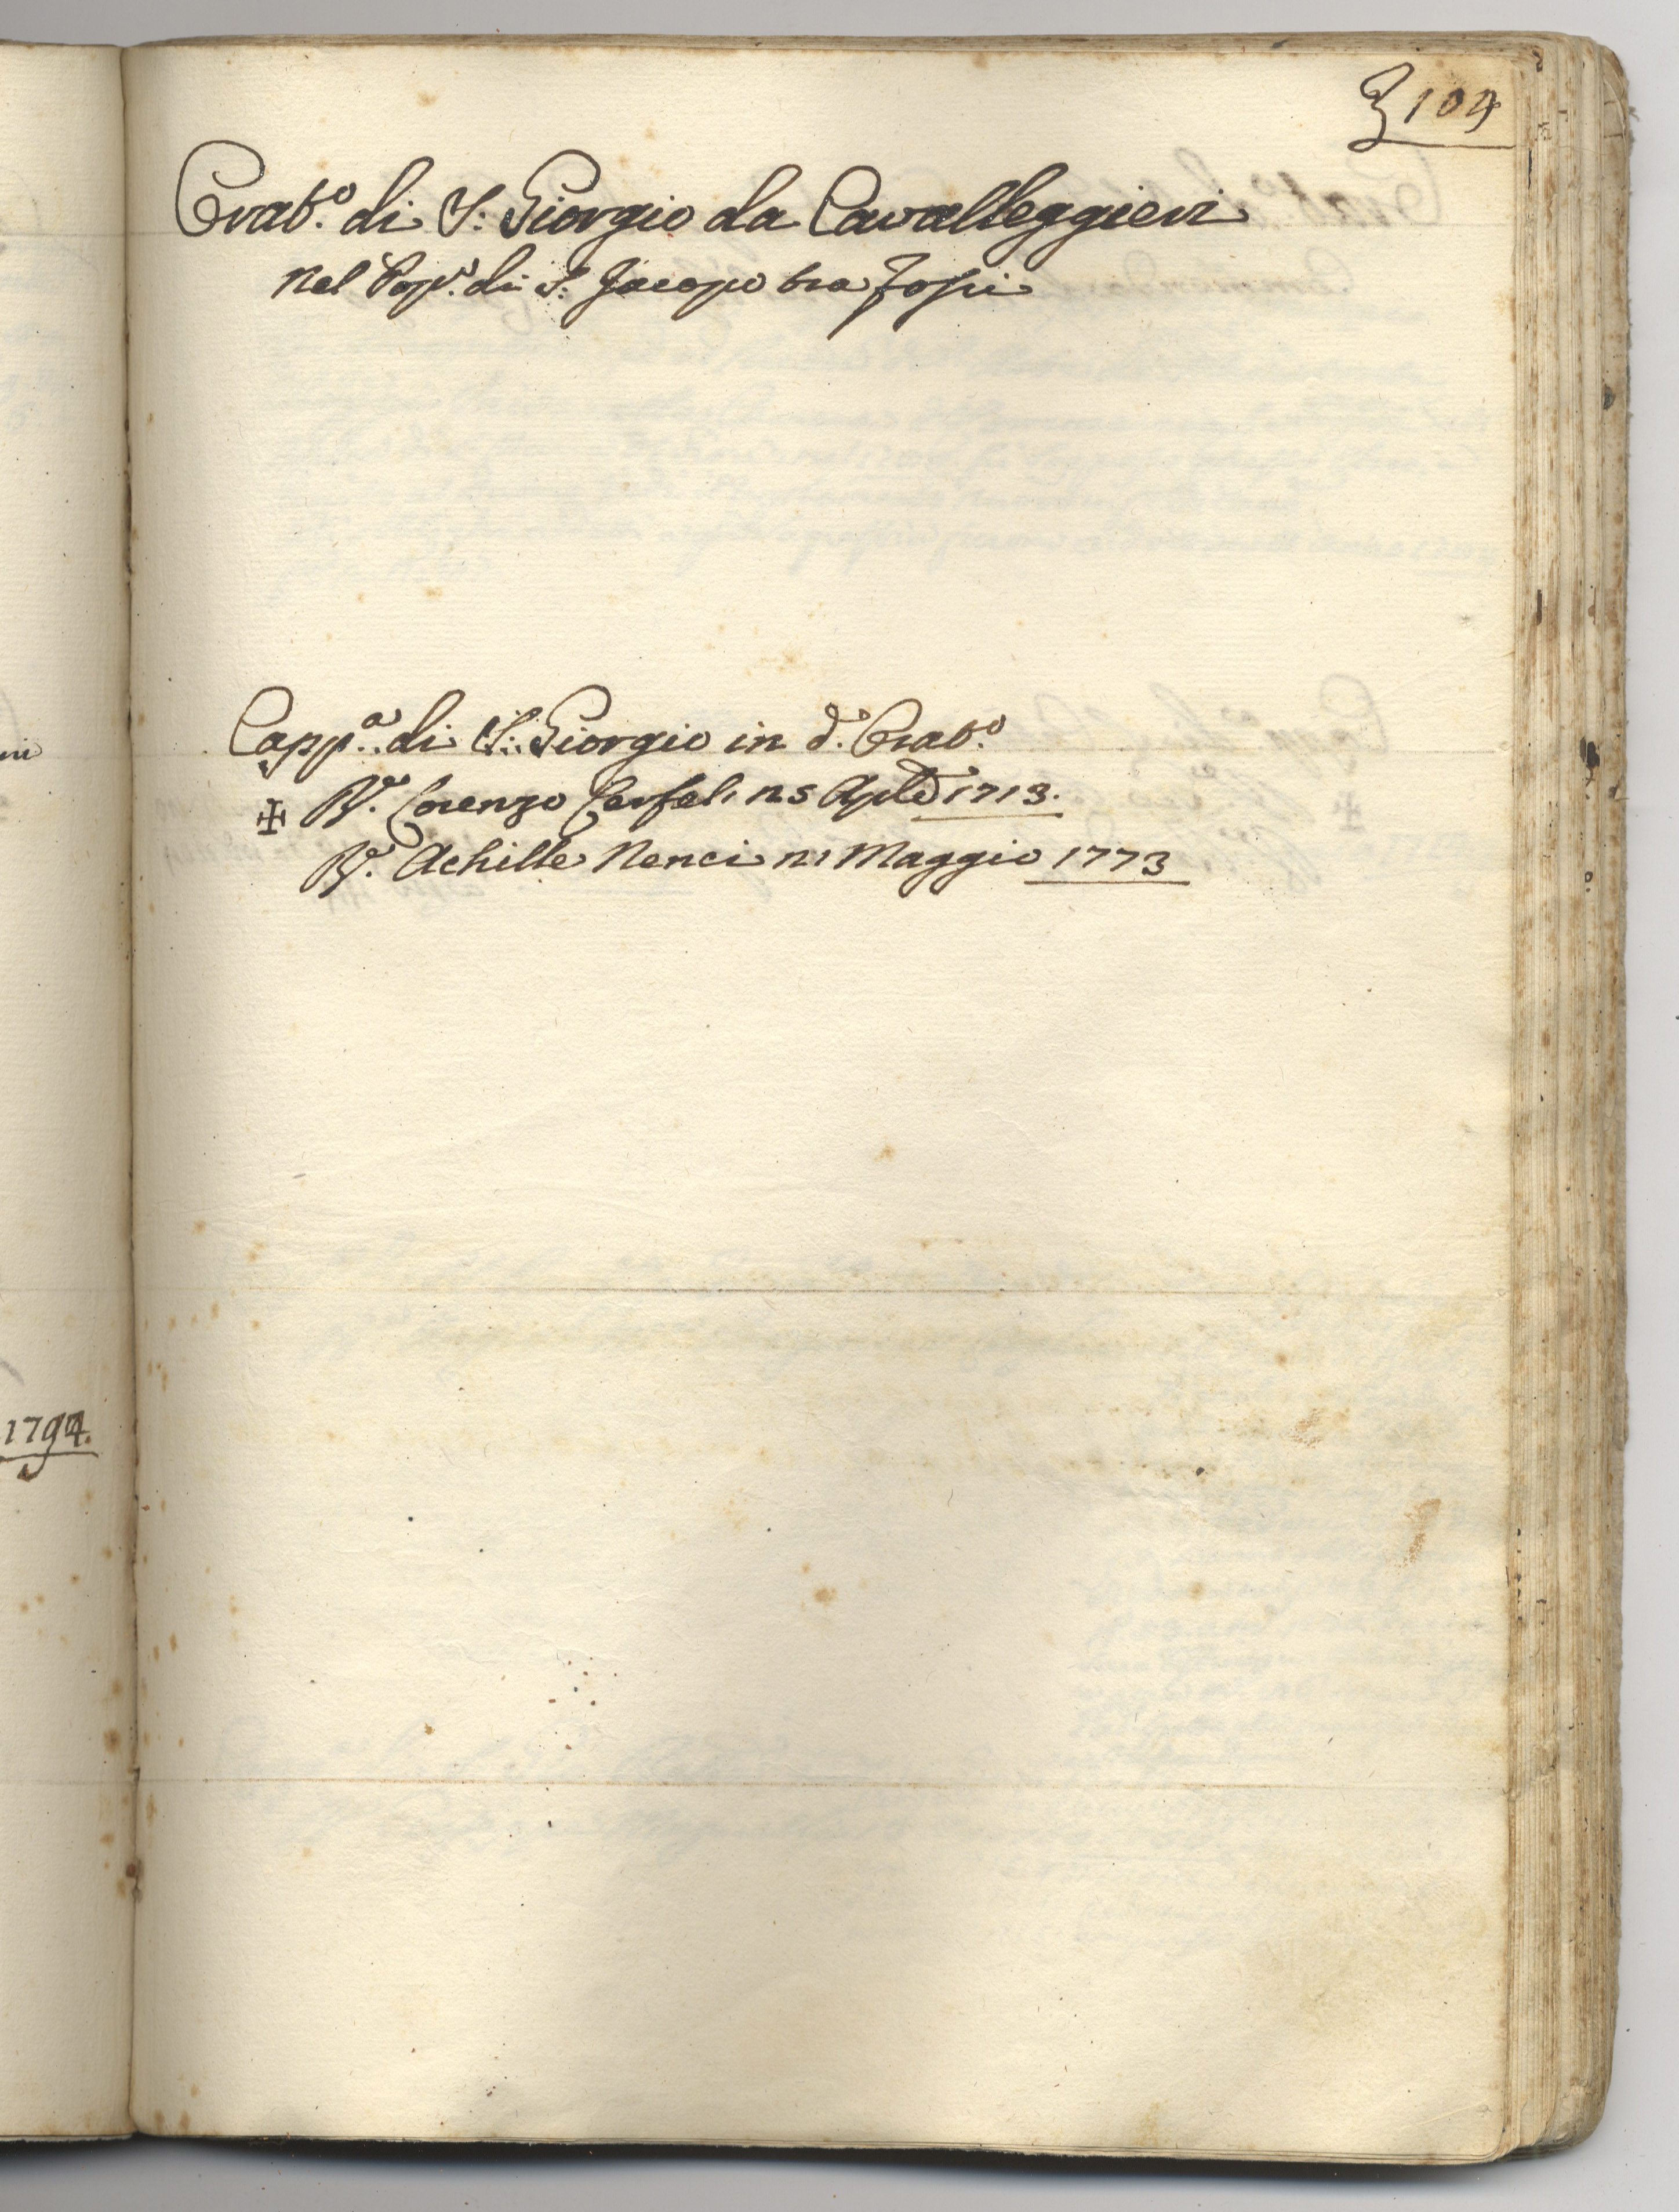 104
Orat.o di S: Giorgio da Cavalleggieri
nel Pop.o di S: Jacopo tra fossi
Capp.a di S: Giorgio in d.o Orat.o
✠ R.e Lorenzo n 5 Aple 1713.
R.e Achille Nenci n 1 Maggio 1773
1794.